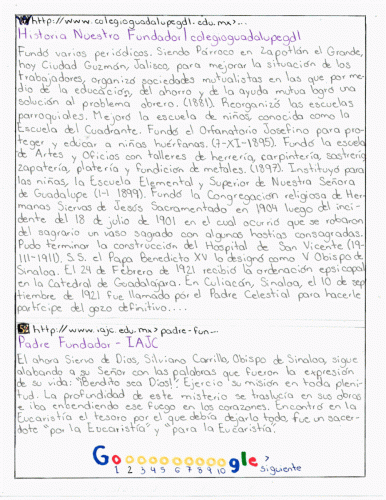 http://www.colegioguadalupegdl.edu.mx>...
Historia Nuestro Fundador|colegioguadalupegdl
Fundó varios periódicos. Siendo Párroco en Zapotlán el Grande,
hoy Ciudad Guzmán, Jalisco, para mejorar la situación de los
trabajadores, organizó sociedades mutualistas en las que por me-
dio de la educación, del ahorro y de la ayuda mutua logró una
solución al problema obrero. (1881). Reorganizó las escuelas
parroquiales. Mejoró la escuela de niños, conocida como la
Escuela del Cuadrante. Fundó el Orfanatorio Josefino para pro-
teger y educar a niñas huérfanas. (7-XI-1895). Fundó la escuela
de Artes y Oficios con talleres de herrería, carpintería, sastrería,
zapatería, platería y fundición de metales. (1897). Instituyó para
las niñas, la Escuela Elemental y Superior de Nuestra Señora
de Guadalupe (1-1 1899). Fundó la Congregación religiosa de Her-
manas Siervas de Jesús Sacramentado en 1904 luego del inci-
dente del 18 de julio de 1901 en el cual ocurrió que se robaron
del sagrario un vaso sagrado con algunas hostias consagradas.
Pudo terminar la construcción del Hospital de San Vicente (19-
III-1911), S.S. el Papa Benedicto XV lo designó como V Obispo de
Sinaloa. El 24 de Febrero de 1921 recibió la ordenación episcopal
en la Catedral de Guadalajara. En Culiacán, Sinaloa, el 10 de sep
tiembre de 1921 fue llamado por el Padre Celestial para hacerle
partícipe del gozo definitivo....
http://www.iajc.edu.mx>padre-fun...
Padre Fundador - IAJC
El ahora Siervo de Dios, Silviano Carrillo, Obispo de Sinaloa, sigue
alabando a su Señor con las palabras que fueron la expresión
de su vida: "Bendito sea Dios!". Ejerció su misión en toda pleni-
tud. La profundidad de este misterio se traslucía en sus obras
e iba enbendiendo ese fuego en los corazones. Encontró en la
Eucaristía el tesoro por el que debía dejarlo todo, fue un sacer-
dote "por la Eucaristía" y "para la Eucaristía".
Google >
1 2 3 4 5 6 7 8 9 10 siguiente